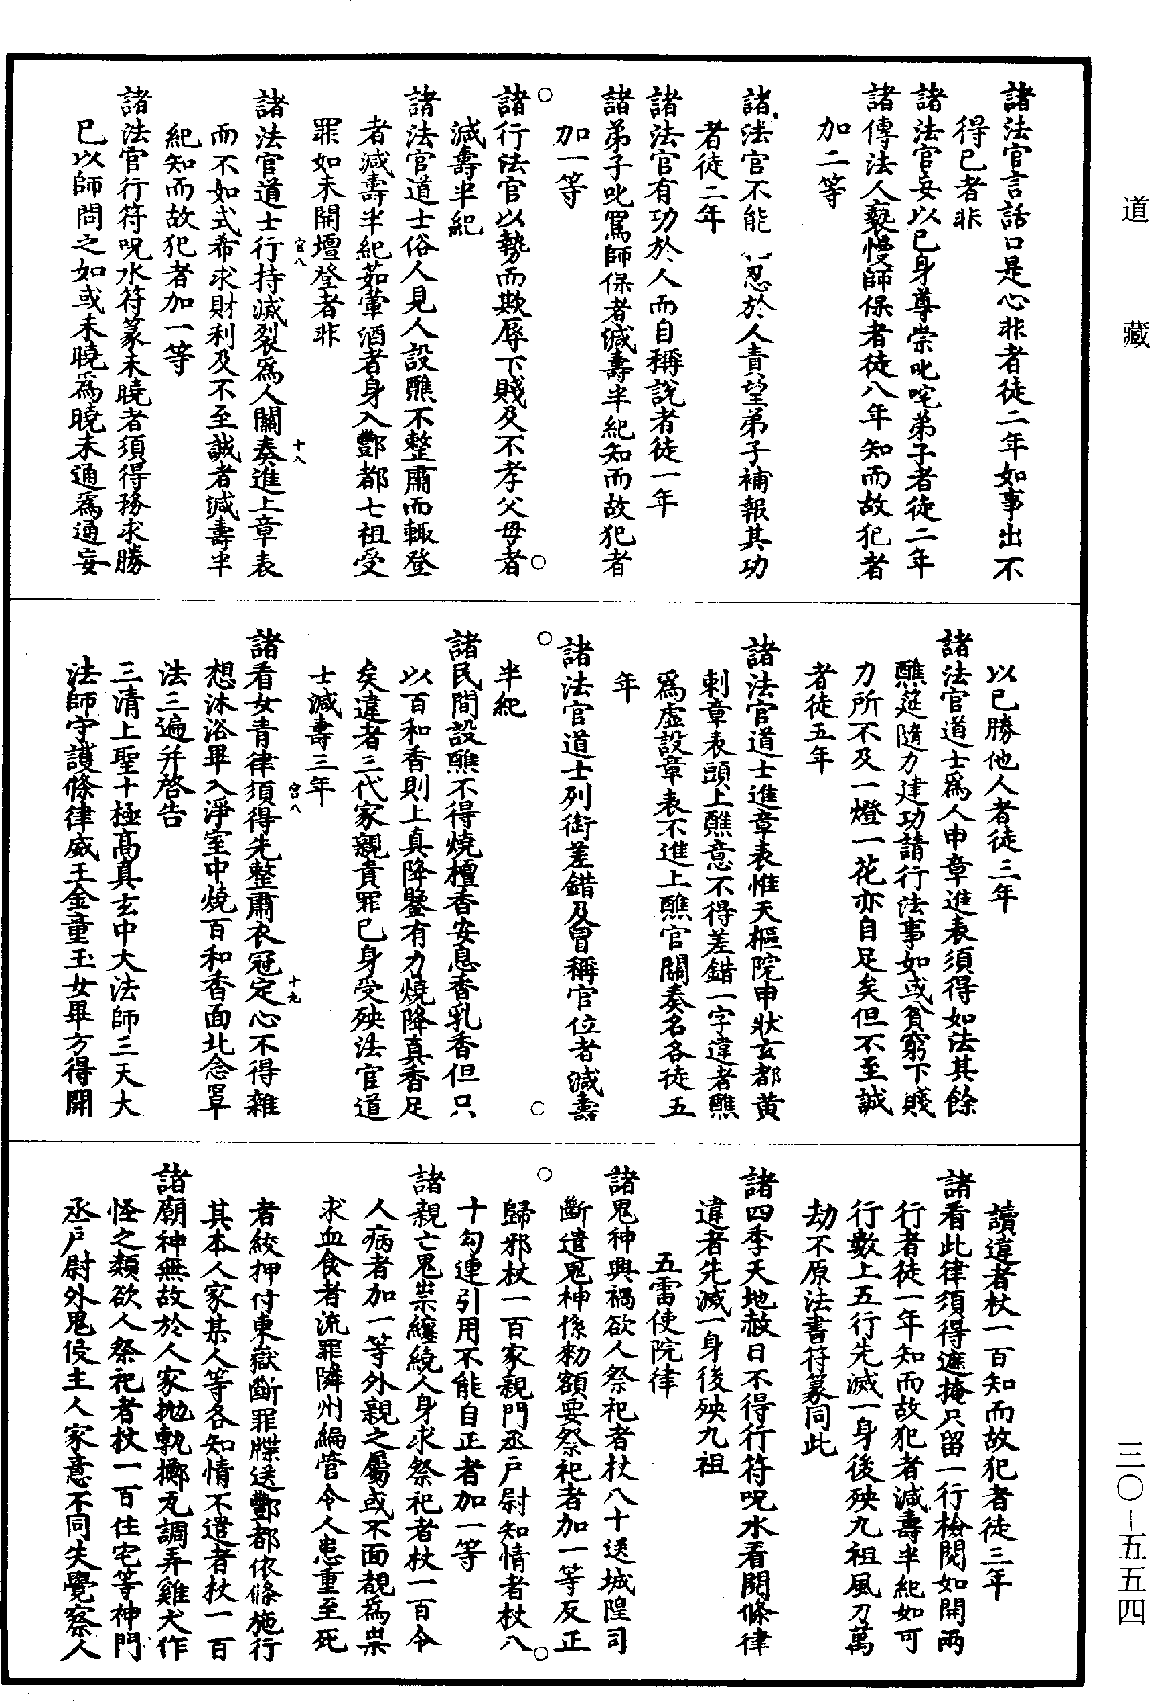 諸法官言話口是心非者徒二年如事出不
得已者非
諸法官妄以已身尊崇叱咤弟子者徒二年
諸傳法人褻慢師保者徒八年知而故犯者
加二等
諸法官不能 忍於人責望弟子補報其功
者徒二年
諸法官有功於人而自稱說者徒一年
諸弟子叱罵師保者減壽半紀知而故犯者
加一等
諸行法官以勢而欺辱下賤及不孝父母者
減壽半紀
諸法官道士俗人見人設醮不整肅而輙登
者減壽半紀茹葷酒者身入酆都七祖受
罪如未開壇登者非
宮八 十八
諸法官道士行持減裂爲人關奏進上章表
而不如式希求財利及不至誠者減壽半
紀知而故犯者加一等
諸法官行符呪水符篆未曉者須得務求勝
已以師問之如或未曉爲曉未通爲通妄
以已勝他人者徒三年
諸法官道士爲人申章進表須得如法其餘
醮筵隨力建功請行法事如或貧窮下賤
力所不及一燈一花亦自足矣但不至誠
者徒五年
諸法官道士進章表惟天樞院申狀玄都黄
剌章表頭上醮意不得差錯一字違者醮
爲虛設章表不進上醮官關奏名各徒五
年
諸法官道士列銜差錯及冒稱官位者減壽
半紀
諸民間設醮不得燒檀香安息香乳香但只
以百和香則上真降鑒有力燒降真香足
矣違者三代家親責罪已身受殃法官道
士減壽三年
宮八 十九
諸看女青律須得先整肅衣冠定心不得雜
想沐浴畢入淨室中燒百和香面北念罩
法三遍并啓告
三清上聖十極高真玄中大法師三天大
法師守護條律威王金童玉女畢方得開
讀違者杖一百知而故犯者徒三年
諸看此律須得遮掩只留一行檢閱如開兩
行者徒一年知而故犯者減壽半紀如可
行數上五行先滅一身後殃九祖風刀萬
劫不原法書符篆同此
諸四季天地赦日不得行符呪水看閱條律
違者先滅一身後殃九祖
五雷使院律
諸鬼神興禍欲人祭祀者杖八十送城隍司
斷遣鬼神係勑額要祭祀者加一等反正
歸邪杖一百家親門丞戶尉知情者杖八
十勾連引用不能自正者加一等
諸親亡鬼祟纏繞人身求祭祀者杖一百令
人病者加一等外親之屬或不面覩爲祟
求血食者流罪隣州編管令人患重至死
者絞押付東嶽斷罪牒送酆都依條施行
其本人家某人等各知情不遣者杖一百
諸廟神無故於人家抛執擲瓦調弄雞犬作
怪之類欲人祭祀者杖一百住宅等神門
丞戶尉外鬼侵主人家意不同失覺察人
道藏
三〇-五五四